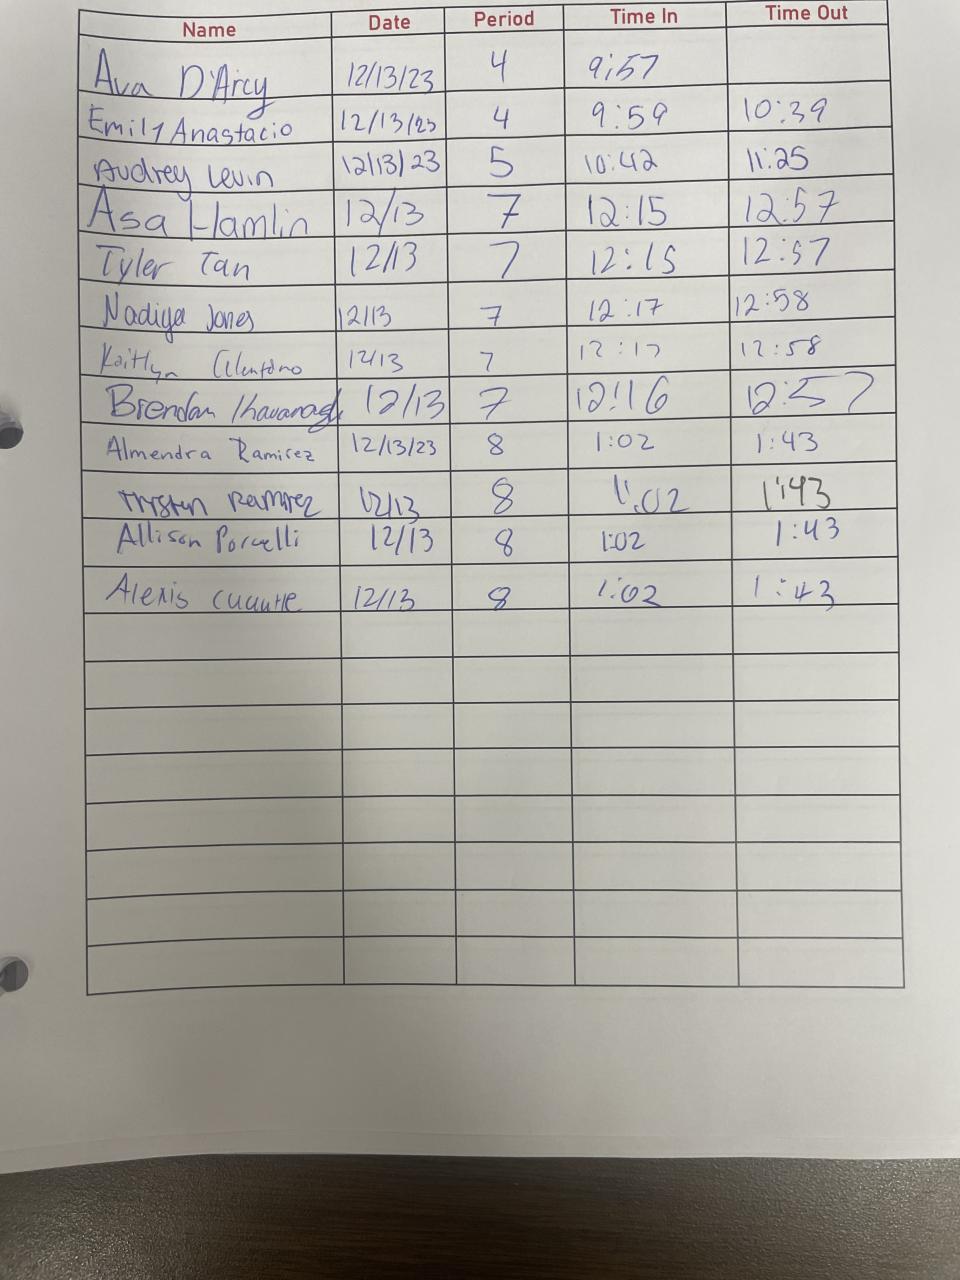 Name Date Period Time In Time Out
Ava D'Arcy 12/13/23 4 9:57
Emily Anastacio 12/13/23 4 9:59 10:39
Audrey Levin 12/13/23 5 10:42 11:25
Asa Hamlin 12/13 7 12:15 12:57
Tyler Tan 12/13 7 12:15 12:57
Nadiya Jones 12/13 7 12:17 12:58
Kaitlyn 12/13 7 12:17 12:58
Brendan 12/13 7 12:16 12:57
Almendra Ramirez 12/13/23 8 1:02 1:43
Trysten Ramirez 12/13 8 1:02 1:43
Allison Porcelli 12/13 8 1:02 1:43
Alexis Cuautle 12/13 8 1:02 1:43